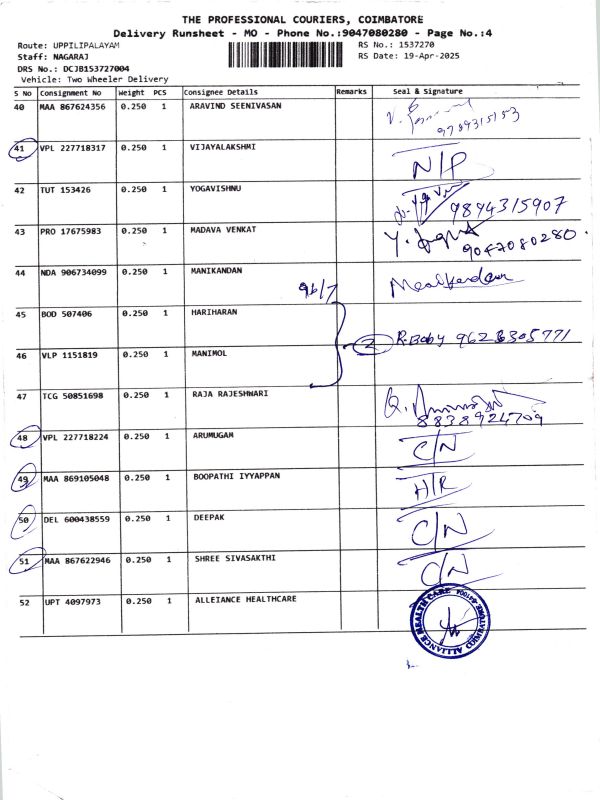 THE PROFESSIONAL COURIERS, COIMBATORE
Delivery Runsheet - MO - Phone No.:9047080280 - Page No.:4
Route: UPPILIPALAYAM RS No.: 1537270
Staff: NAGARAJ RS Date: 19-Apr-2025
DRS No.: DCJB153727004
Vehicle: Two Wheeler Delivery
S No Consignment No Weight PCS Consignee Details Remarks Seal & Signature
40 MAA 867624356 0.250 1 ARAVIND SEENIVASAN
9789315153
41 VPL 227718317 0.250 1 VIJAYALAKSHMI N/P
42 TUT 153426 0.250 1 YOGAVISHNU 9894315907
43 PRO 17675983 0.250 1 MADAVA VENKAT 9047080280.
44 NDA 906734099 0.250 1 MANIKANDAN
96/7
45 BOD 507406 0.250 1 HARIHARAN
2 R.Baby 9626305771
46 VLP 1151819 0.250 1 MANIMOL
47 TCG 50851698 0.250 1 RAJA RAJESHWARI
8838924709
48 VPL 227718224 0.250 1 ARUMUGAM C/N
49 MAA 869105048 0.250 1 BOOPATHI IYYAPPAN H/R
50 DEL 600438559 0.250 1 DEEPAK C/N
51 MAA 867622946 0.250 1 SHREE SIVASAKTHI C/N
52 UPT 4097973 0.250 1 ALLEIANCE HEALTHCARE
ALLIANCE HEALTH CARE COIMBATORE